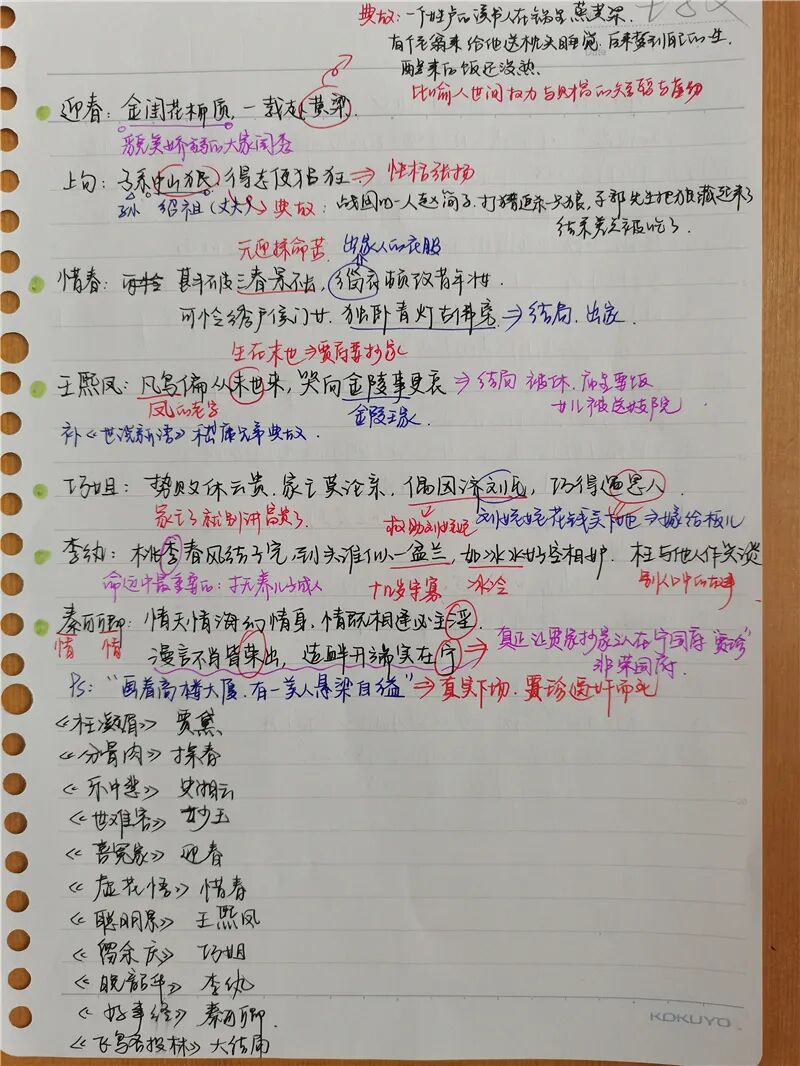 典故：一个姓卢的读书人在锅里蒸黄粱
有个老翁来给他送枕头睡觉，后来梦到自己的一生，
醒来后饭还没熟.
比喻人世间权力与财富的短暂与虚幻
迎春：金闺花柳质，一载赴黄梁.
貌美娇弱的大家闺秀
上句：子系中山狼，得志便猖狂 ⇒ 性格张扬
孙 绍祖(丈夫) 典故：战国的一人赵简子，打猎追杀一只狼，东郭先生把狼藏起来了
结果差点被吃了.
元迎探命苦 出家人的衣服
惜春：勘破三春景不长，缁衣顿改昔年妆
可怜绣户侯门女，独卧青灯古佛旁 ⇒ 结局.出家.
生在末世⇒贾府要抄家
王熙凤：凡鸟偏从末世来，哭向金陵事更哀 ⇒ 结局 被休.
凤的老字 金陵王家 女儿被送妓院
补《世说新语》嵇康兄弟典故.
巧姐：势败休云贵，家亡莫论亲，偶因济刘氏，巧得遇恩人.
家亡了就别讲富贵了. 救助刘姥姥 刘姥姥花钱买下她⇒嫁给板儿
李纨：桃李春风结子完，到头谁似一盆兰，如冰水好空相妒.枉与他人作笑谈
命运中最重要的：抚养儿子成人 守寡 冰冷 别人口中的故事
秦可卿：情天情海幻情身，情既相逢必主淫.
情 情 漫言不肖皆荣出，造衅开端实在宁 ⇒ 真正让贾家抄家认在宁国府"贾珍"
非荣国府.
Ps："画着高楼大厦，有一美人悬梁自缢" ⇒ 真实下场.
《枉凝眉》 贾黛
《分骨肉》 探春
《乐中悲》 史湘云
《世难容》 妙玉
《喜冤家》 迎春
《虚花悟》 惜春
《聪明累》 王熙凤
《留余庆》 巧姐
《晚韶华》 李纨
《好事终》 秦可卿.
《飞鸟各投林》 大结局
KOKUYO